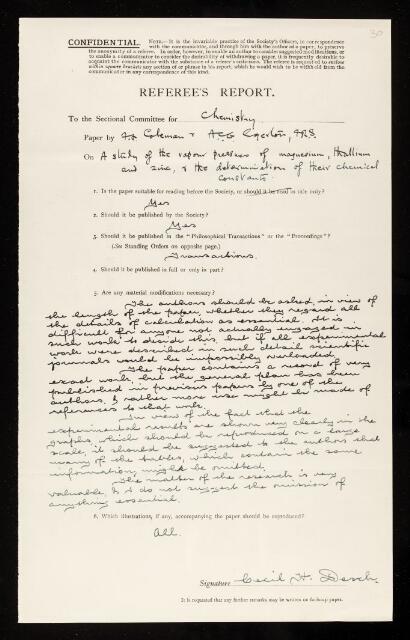 30
CONFIDENTIAL. NOTE.—It is the invariable practice of the Society's Officers, in correspondence
with the communicator, and through him with the author of a paper, to preserve
the anonymity of a referee. In order, however, to enable an author to consider suggested modifications, or
to enable a communicator to consider the desirability of withdrawing a paper, it is frequently desirable to
acquaint the communicator with the substance of a referee's criticisms. The referee is requested to enclose
within square brackets any section of or phrase in his report, which he would wish to be withheld from the
communicator in any correspondence of this kind.
REFEREE'S REPORT.
To the Sectional Committee for Chemistry
Paper by F.F. Coleman & A.C.G. Egerton, F.R.S.
On A study of the vapour pressures of magnesium, thallium
and zinc, & the determination of their chemical
constants.
1. Is the paper suitable for reading before the Society, or should it be read in title only?
Yes
2. Should it be published by the Society?
Yes
3. Should it be published in the "Philosophical Transactions" or the "Proceedings"?
(See Standing Orders on opposite page.)
Transactions.
4. Should it be published in full or only in part?
5. Are any material modifications necessary?
The authors should be asked, in view of
the length of the paper, whether they regard all
the details of calculation as essential. It is
difficult for anyone not actually engaged in
such work to decide this, but if all experimental
work were described in such detail scientific
journals would be impossibly overloaded.
The paper contains a record of very
exact work, but the general plan has been
published in previous papers by one of the
authors, & rather more use might be made of
references to that work.
In view of the fact that the
experimental results are shown very clearly in the
graphs, which should be reproduced on a large
scale, it should be suggested to the authors that
many of the tables, which contain the same
information, might be omitted.
The matter of the research is very
valuable, & I do not suggest the omission of
anything essential.
6. Which illustrations, if any, accompanying the paper should be reproduced?
All.
Signature Cecil H. Desch.
It is requested that any further remarks may be written on foolscap paper.